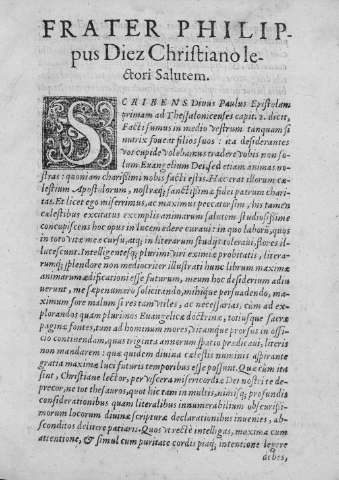 FRATER PHILIP-
pus Diez Christiano le-
ctori Salutem.
SCRIBENS Diuus Paulus Epistolam
primam ad Thessalonicenses capit. 2. dicit,
Facti sumus in medio vestrum tanquam si
nutrix foueat filios suos: ita desiderantes
vos cupide volebamus tradere vobis non so-
lum Euangelium Dei, sed etiam animas no-
stras: quoniam charissimi nobis facti estis. Hæc erat illorum cæ-
lestium Apostolorum, nostræq; sanctissimæ fidei patrum chari-
tas. Et licet ego miserrimus, ac maximus peccator sim, his tamen
cælestibus excitatus exemplis animarum salutem studiosissime
concupiscens hoc opus in lucem edere curaui: in quo laborũ, quos
in toto vitæ meæ cursu, atq; in literarum studijs toleraui, flores il-
lucescunt. Intelligentesq; plurimi viri eximiæ probitatis, litera-
rumq; splendore non mediocriter illustrati hunc librum maximæ
animarum ædificationi esse futurum, meum hoc desiderium adiu
uerunt, me sæpenumero solicitando, mihique persuadendo, ma-
ximum fore malum si res tam vtiles, ac necessarias, cùm ad ex-
plorandos quam plurimos Euangelicæ doctrinæ, totiusque sacræ
paginæ fontes, tam ad hominum mores, vitamque prorsus in offi-
cio continendam, quas triginta annorum spatio prædicaui, literis
non mandarem: quæ quidem diuina cælestis numinis aspirante
gratia maximæ luci futuris temporibus esse possunt. Quæ cùm ita
sint, Christiane lector, per viscera misericordiæ Dei nostri te de-
precor, ne tot thesauros, quot hic tam in multis, nimisq; profundis
considerationibus quam literalibus innumerabilium obscurissi-
morum locorum diuinæ scripturæ declarationibus inuenies, ab-
sconditos delitere patiaris. Quos vt rectè intelligas, maxima cum
attentione, & simul cum puritate cordis piaq; intentione legere
debes,